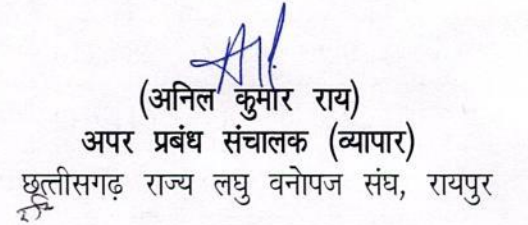 (अनिल कुमार राय)
अपर प्रबंध संचालक (व्यापार)
छत्तीसगढ़ राज्य लघु वनोपज संघ, रायपुर